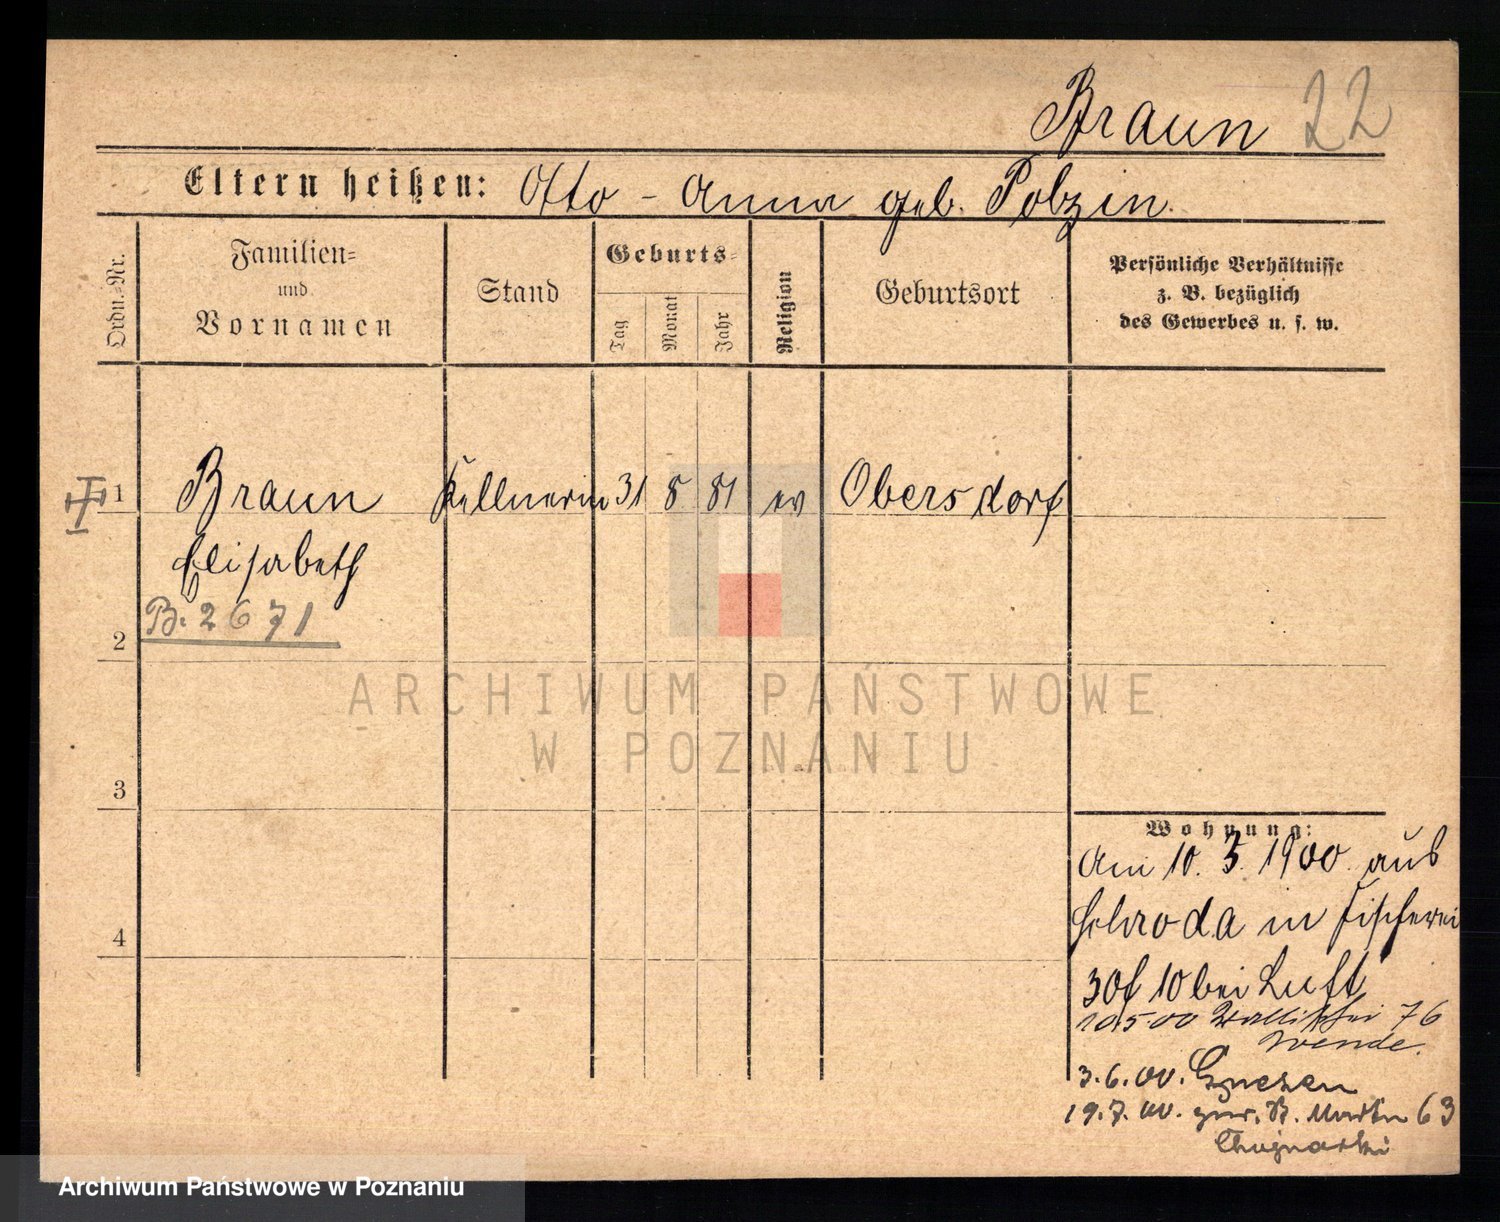 Braun 22
Eltern heißen: Otto - Anna geb. Polzin.
Ordn.-Nr.
Familien-
und
Vornamen
Stand
Geburts-
Tag
Monat
Jahr
Religion
Geburtsort
Persönliche Verhältnisse
z. B. bezüglich
des Gewerbes u. s. w.
1 Braun Kellnerin 31 8 81 ev Obersdorf
Elisabeth
B. 2671
2
3
4
ARCHIWUM PAŃSTWOWE
W POZNANIU
Wohnung:
Am 10. 3. 1900 aus
Schroda in Fischerei
10 bei Luft
10.5 00 Wallischei 76
Wende.
3. 6. 00. Gnesen
19. 7. 00. zur. St. Martin 63
Archiwum Państwowe w Poznaniu